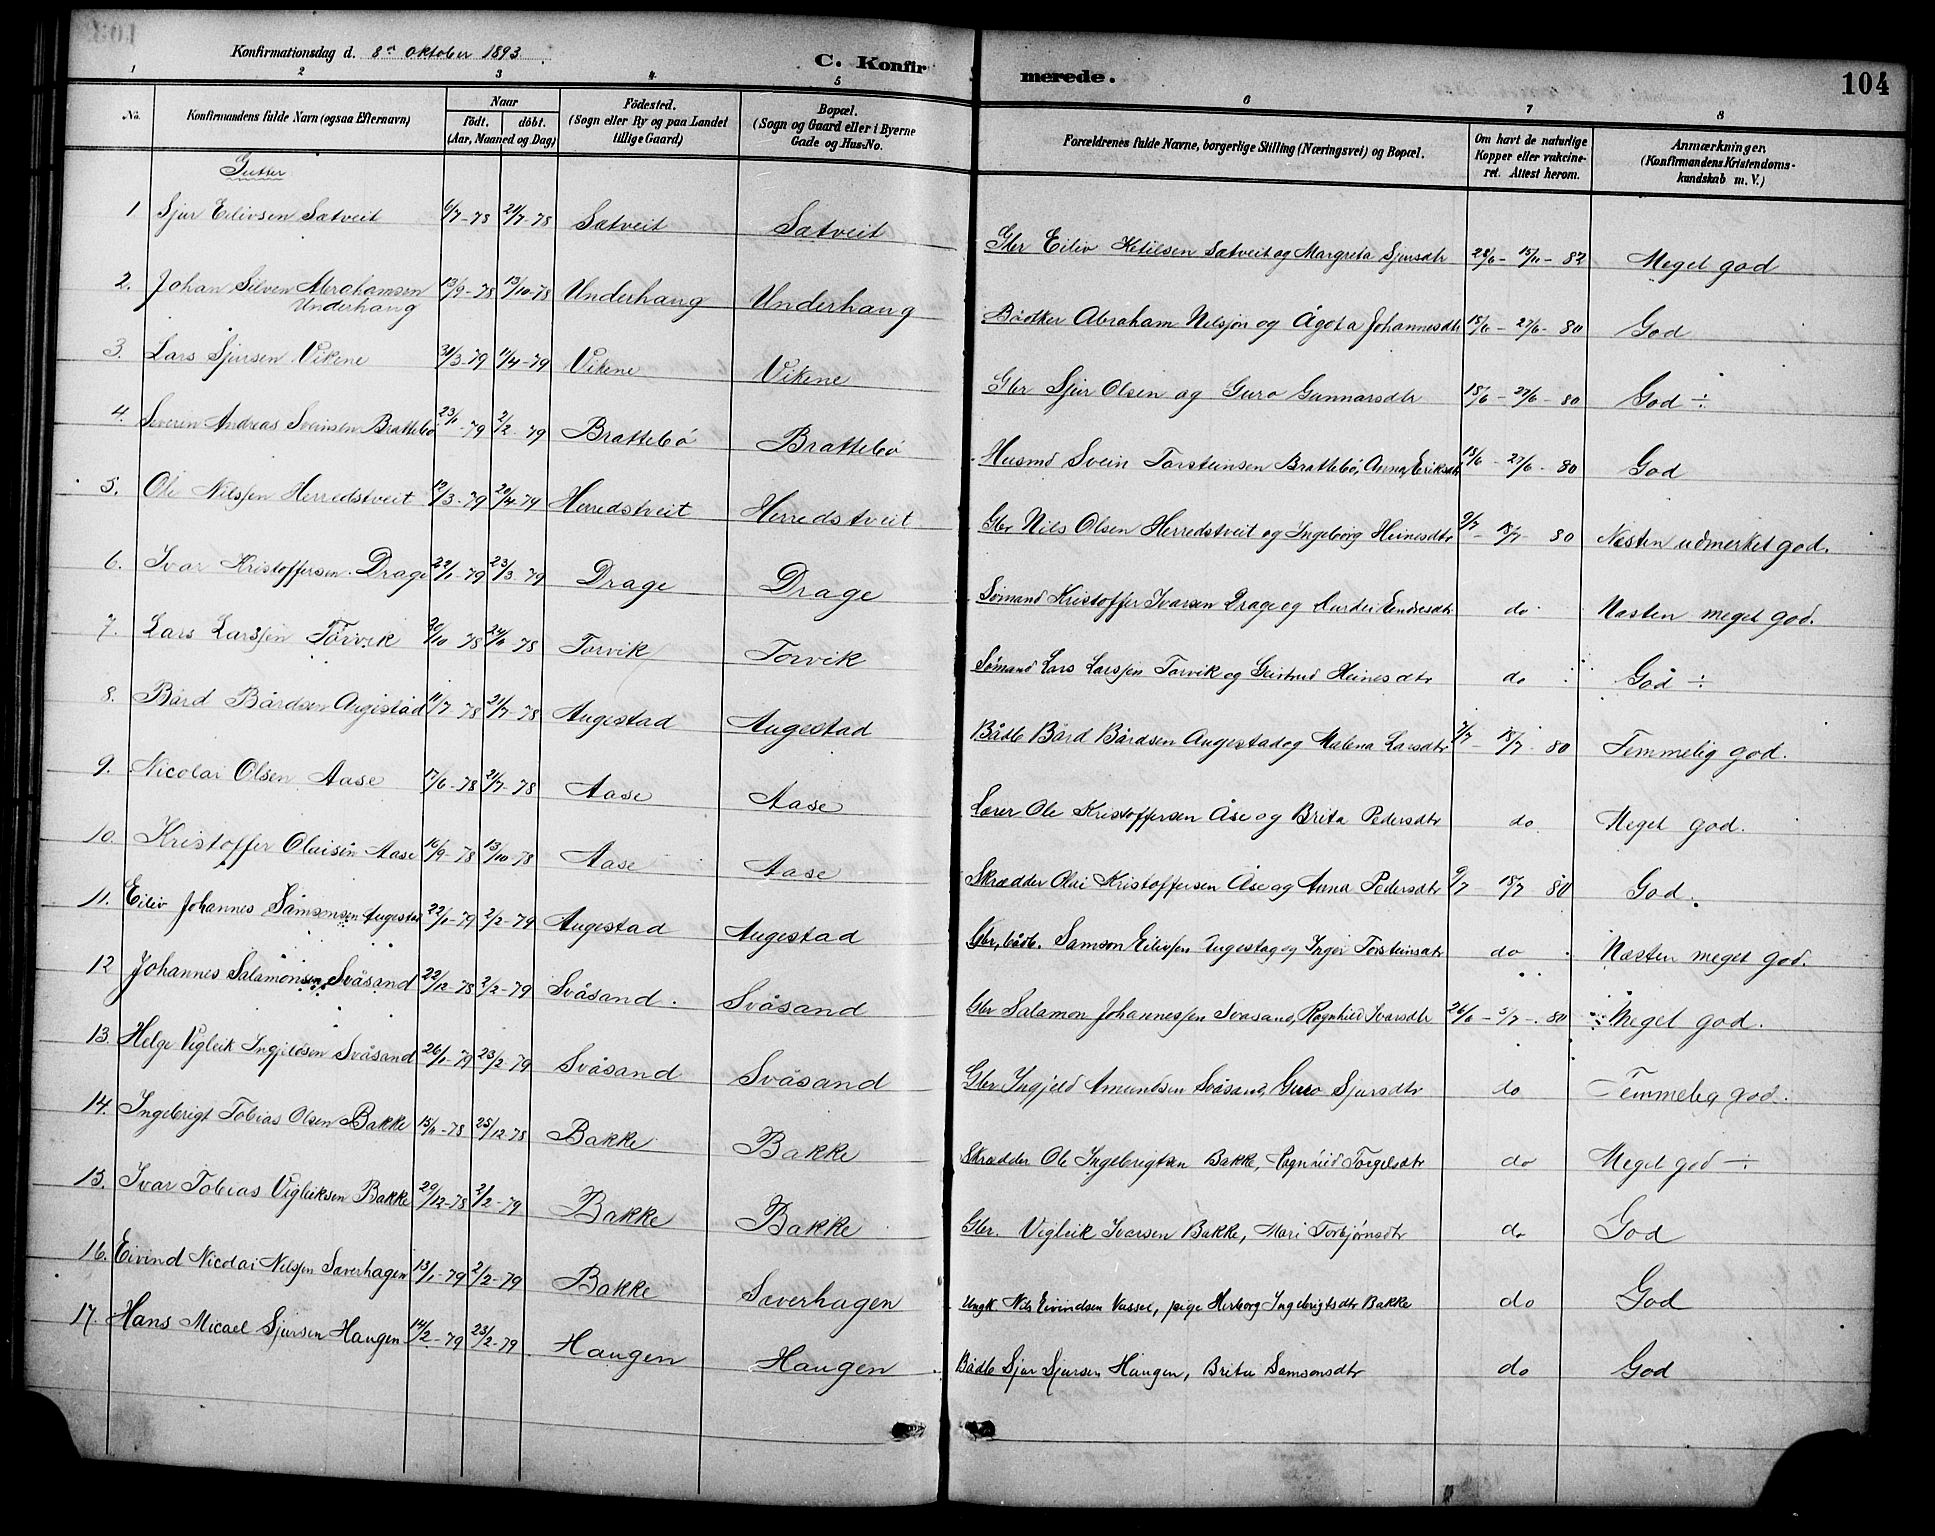 Konfirmationsdag d. 8de Oktober 1893. C. Konfirmerede. 104
1 2 3 4 5 6 7 8
No. Konfirmandens fulde Navn (ogsaa Efternavn) Naar födt. döbt. (Aar, Maaned og Dag) Födested. (Sogn eller By og paa Landet tillige Gaard) Bopæl. (Sogn og Gaard eller i Byerne Gade og Hus-No. Forældrenes fulde Navne, borgerlige Stilling (Næringsvei) og Bopæl. Om havt de naturlige Kopper eller vakcineret. Attest herom. Anmærkninger. (Konfirmandens Kristendomskundskab m. V.)
Gutter
1. Sjur Eilivsen Sætveit 6/7-78 21/7-78 Sætveit Sætveit Gbr Eiliv Ketilsen Sætveit og Margreta Sjursdtr 28/6 - 15/11 - 82 Meget god
2. Johan Silven Abrahamsen Underhaug 13/9-78 13/10-78 Underhaug Underhaug Bödker Abraham Nilsjon og Ågota Johannesdtr 18/6 - 27/6 - 80 God
3. Lars Sjursen Vikene 31/3-79 11/4-79 Vikene Vikene Gbr Sjur Olsen og Guro Gunnarsdtr 18/6 - 27/6 - 80 God ÷
4. Severin Andreas Sveinsen Brattebö 23/1-79 2/2-79 Brattebö Brattebö Husmd Svein Torsteinsen Brattebö, Anna Eriksdtr 18/6 - 27/6 - 80 God
5. Ole Nilssen Herredstveit 12/3-79 20/4-79 Herredstveit Herredstveit Gbr Nils Olsen Herredstveit og Ingeborg Heinesdtr 9/7 - 18/7 - 80 Næsten udmerket god.
6. Ivar Kristoffersen Drage 22/1-79 23/3-79 Drage Drage Sömand Kristoffer Ivarsen Drage og Endresdtr do Næsten meget god.
7. Lars Larssen Torvik 20/10-78 24/11-78 Torvik Torvik Sömand Lars Larssen Torvik og Geirtrud Heinesdtr do God ÷
8. Bård Bårdsen Augestad 11/7-78 21/7-78 Augestad Augestad Bådb Bård Bårdsen Augestad og Malena Larsdtr 9/7 - 18/7 - 80 Temmelig god.
9. Nicolai Olsen Aase 17/6-78 21/7-78 Aase Aase Lærer Ole Kristoffersen Åse og Brita Pedersdtr do Meget god.
10. Kristoffer Olaisen Aase 16/9-78 13/10-78 Aase Aase Skrædder Olai Kristoffersen Åse og Anna Pedersdtr 9/7 - 18/7 80 God.
11. Eiliv Johannes Samsonsen Augestad 22/1-79 2/2-79 Augestad Augestad Gbr, bådb. Samson Eilivsen Augestad og Inger Torsteinsdtr do Næsten meget god.
12 Johannes Salamonsen Svåsand 22/12-78 2/2-79 Svåsand. Svåsand Gbr Salamon Johannessen Svåsand, Ragnhild Ivarsdtr 26/6 - 5/7 - 80 Meget god.
13. Helge Vigleik Ingjeldsen Svåsand 26/1-79 23/2-79 Svåsand Svåsand Gbr Ingjeld Amundsen Svåsand, Guro Sjursdtr do Temmelig god.
14. Ingebrigt Tobias Olsen Bakke 15/11-78 25/12-78 Bakke Bakke Skrædder Ole Ingebrigtsen Bakke, Ragnhild Torgilsdtr do Meget god ÷
15. Ivar Tobias Vigleiksen Bakke 29/12-78 2/2-79 Bakke Bakke Gbr. Vigleik Ivarsen Bakke, Mari Torbjörnsdtr do God
16. Eivind Nicolai Nilssen Sæverhagen 13/1-79 2/2-79 Bakke Sæverhagen Ungk. Nils Eivindsen Vassel, pige Herborg Ingebrigtsdtr Bakke do God
17. Hans Micael Sjursen Haugen 14/2-79 23/2-79 Haugen Haugen Bådb Sjur Sjursen Haugen, Brita Samsonsdtr do God